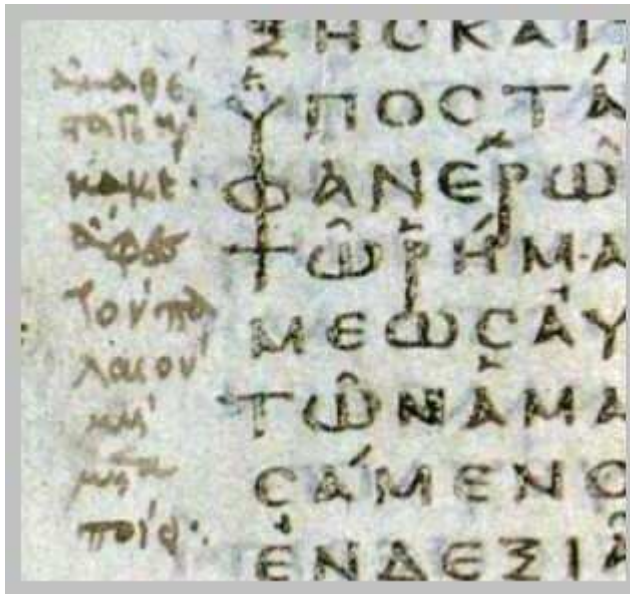 ἀμαθέ
στατε κ
κακέ·
ἄφες
τὸν πα
λαιόν
μὴ
μετα
ποίει·
ΞΗϹΚΑΙ
ΥΠΟϹΤΆ
ΦΑΝΕΡΩ͂
ΤΩ͂ΡΉΜΑ
ΜΕΩϹΑΥ
ΤΩ͂ΝΑΜΑ
ϹΆΜΕΝΟ
ἘΝΔΕΞΙΑ͂